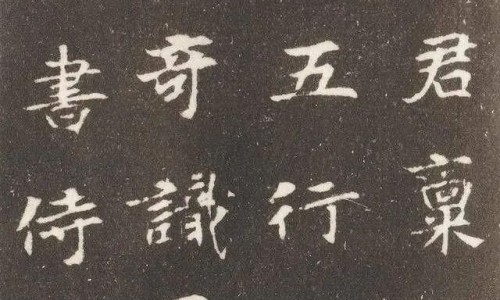 君稟
五行
奇識
書侍